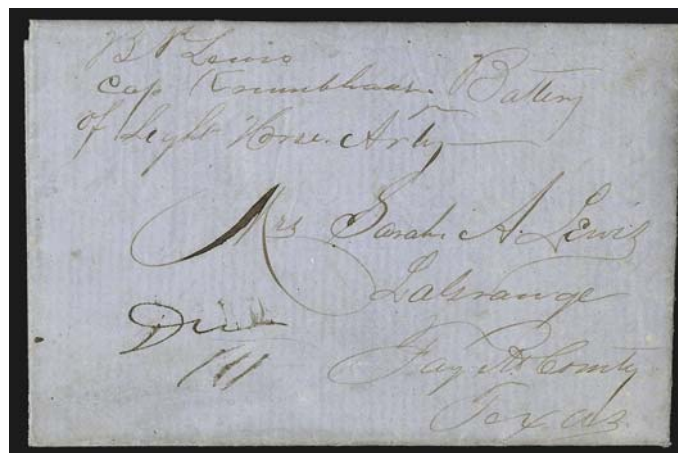 Lewis
Cap Krumbhaar Battery
of Light Horse Arty
Mrs Sarah A. Lewis
LaGrange
Due
Fayette County
Texas